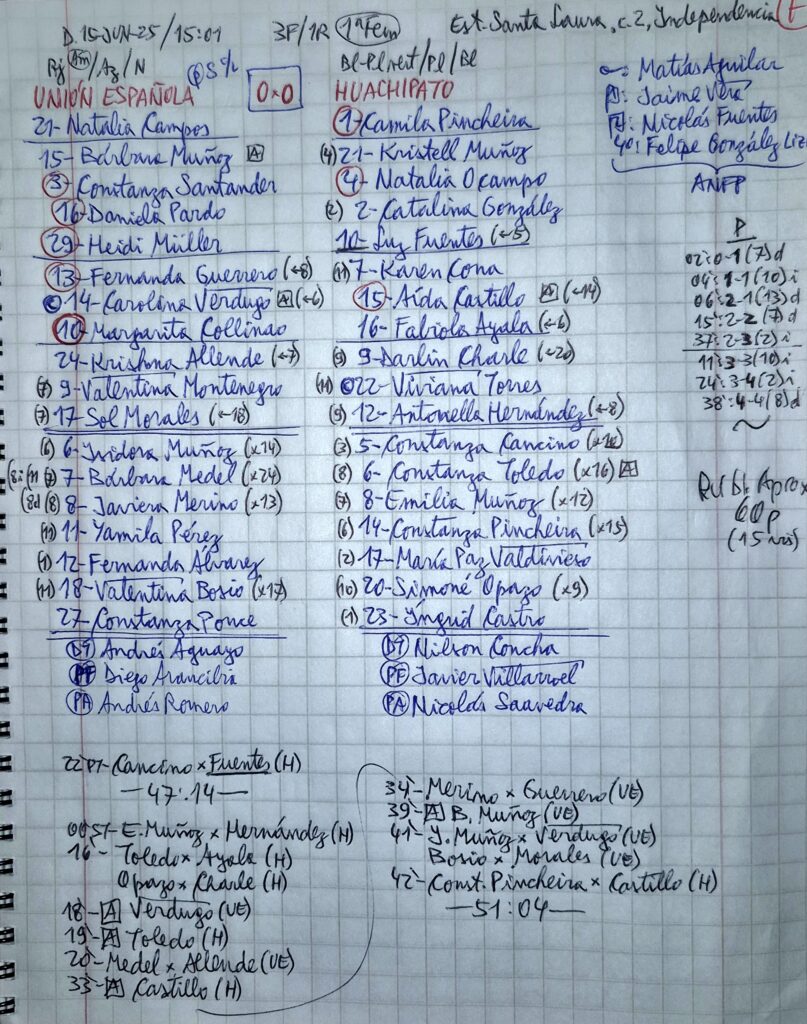 D. 15-JUN-25/15:01 3F/1R 1ª Fem Est. Santa Laura, c.2, Independencia
Rj Am/Az/N 8% Bl-Pl vert/Pl/Bl
UNIÓN ESPAÑOLA 0x0 HUACHIPATO
21-Natalia Campos
15-Bárbara Muñoz A
3-Constanza Santander
16-Daniela Pardo
29-Heidi Müller
13-Fernanda Guerrero (←8)
14-Carolina Verdugo A (←6)
10-Margarita Collinao
24-Krishna Allende (←7)
9-Valentina Montenegro
(7) 17-Sol Morales (←18)
(6) 6-Isidora Muñoz (x14)
7-Bárbara Medel (x24)
(8d (8) 8-Javiera Merino (x13)
(11) 11-Yamila Pérez
(1) 12-Fernanda Álvarez
(11) 18-Valentina Bosio (x17)
27-Constanza Ponce
DT Andrés Aguayo
PF Diego Arancibia
PA Andrés Romero
1-Camila Pincheira
(4) 21-Kristell Muñoz
4-Natalia Ocampo
(2) 2-Catalina González
10-Luz Fuentes (←5)
(11) 7-Karen Cona
15-Aída Castillo A (←14)
16-Fabiola Ayala (←6)
(9) 9-Darlin Charle (←20)
(11) 22-Viviana Torres
(9) 12-Antonella Hernández (←8)
(3) 5-Constanza Cancino
(8) 6-Constanza Toledo (x16) A
(7) 8-Emilia Muñoz (x12)
(6) 14-Constanza Pincheira (x15)
(2) 17-María Paz Valdivieso
(10) 20-Simoné Opazo (x9)
(1) 23-Yngrid Castro
DT Nilson Concha
PF Javier Villarroel
PA Nicolás Saavedra
Matías Aguilar
A1: Jaime Vera
A2: Nicolás Fuentes
4º: Felipe González Liz
ANFP
P
02: 0-1 (7) d
04: 1-1 (10) i
06: 2-1 (13) d
15: 2-2 (7) d
37: 2-3 (2) i
11: 3-3 (10) i
24: 3-4 (2) i
38: 4-4 (8) d
Públ. Aprox
60p
22'PT-Cancino x Fuentes (H)
—47:14—
00'ST-E. Muñoz x Hernández (H)
16'-Toledo x Ayala (H)
Opazo x Charle (H)
18'-A Verdugo (UE)
19'-A Toledo (H)
20'-Medel x Allende (UE)
33'-A Castillo (H)
34'-Merino x Guerrero (UE)
39'-A B. Muñoz (UE)
41'-I. Muñoz x Verdugo (UE)
Bosio x Morales (UE)
42'-Const. Pincheira x Castillo (H)
—51:04—